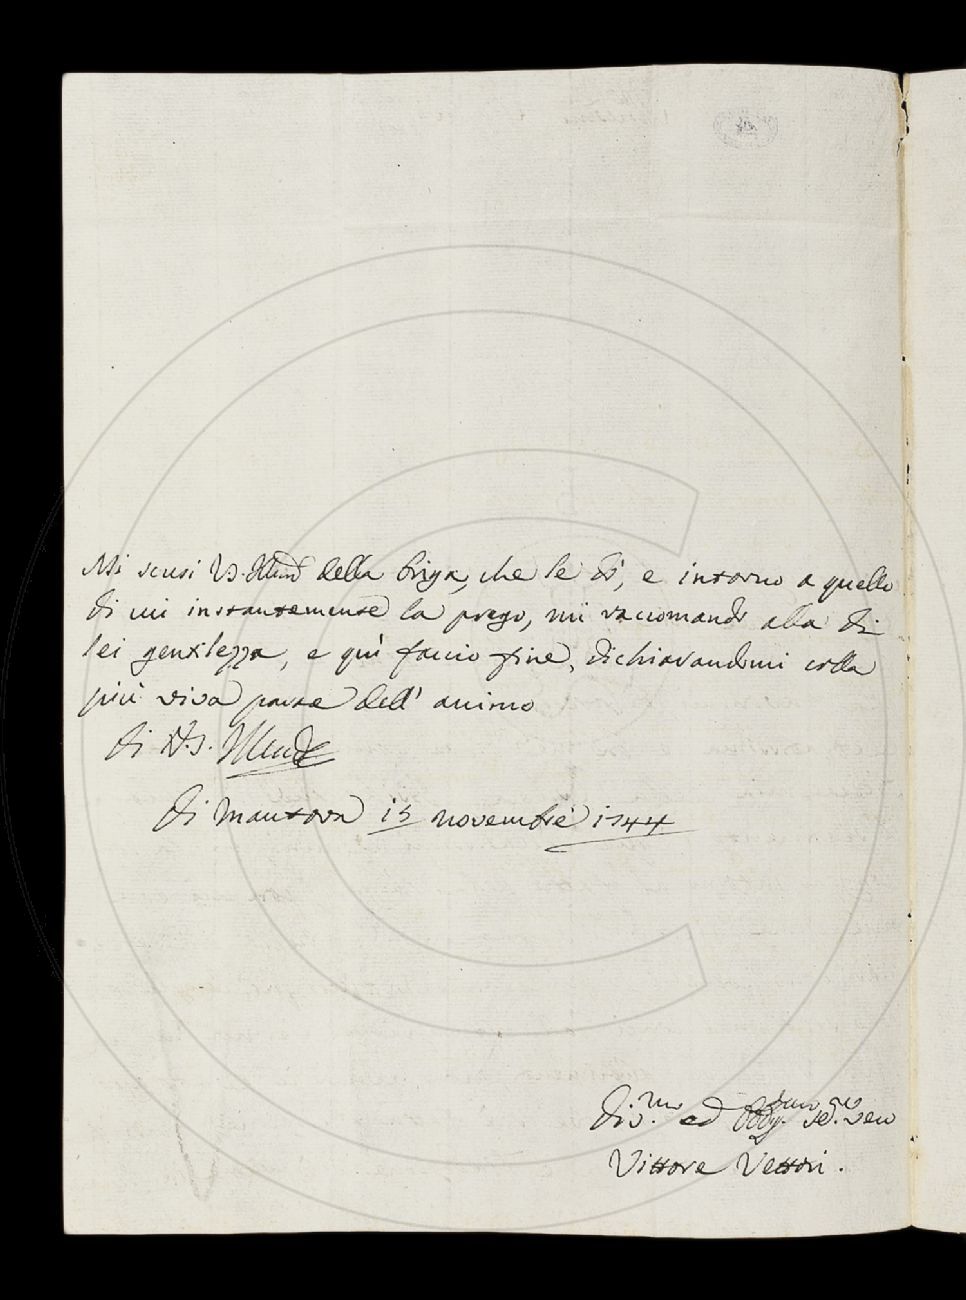 Mi scusi V.S. Illma della briga, che le dò, e intorno a quello
di cui instantemente la prego, mi raccomando alla di
lei gentilezza, e quì faccio fine, dichiarandomi colla
più viva parte dell' animo
di V.S. Illma
di Mantova 13 novembre 1744
Div.mo ed Obbg.mo se.re vero
Vittore Vettori.